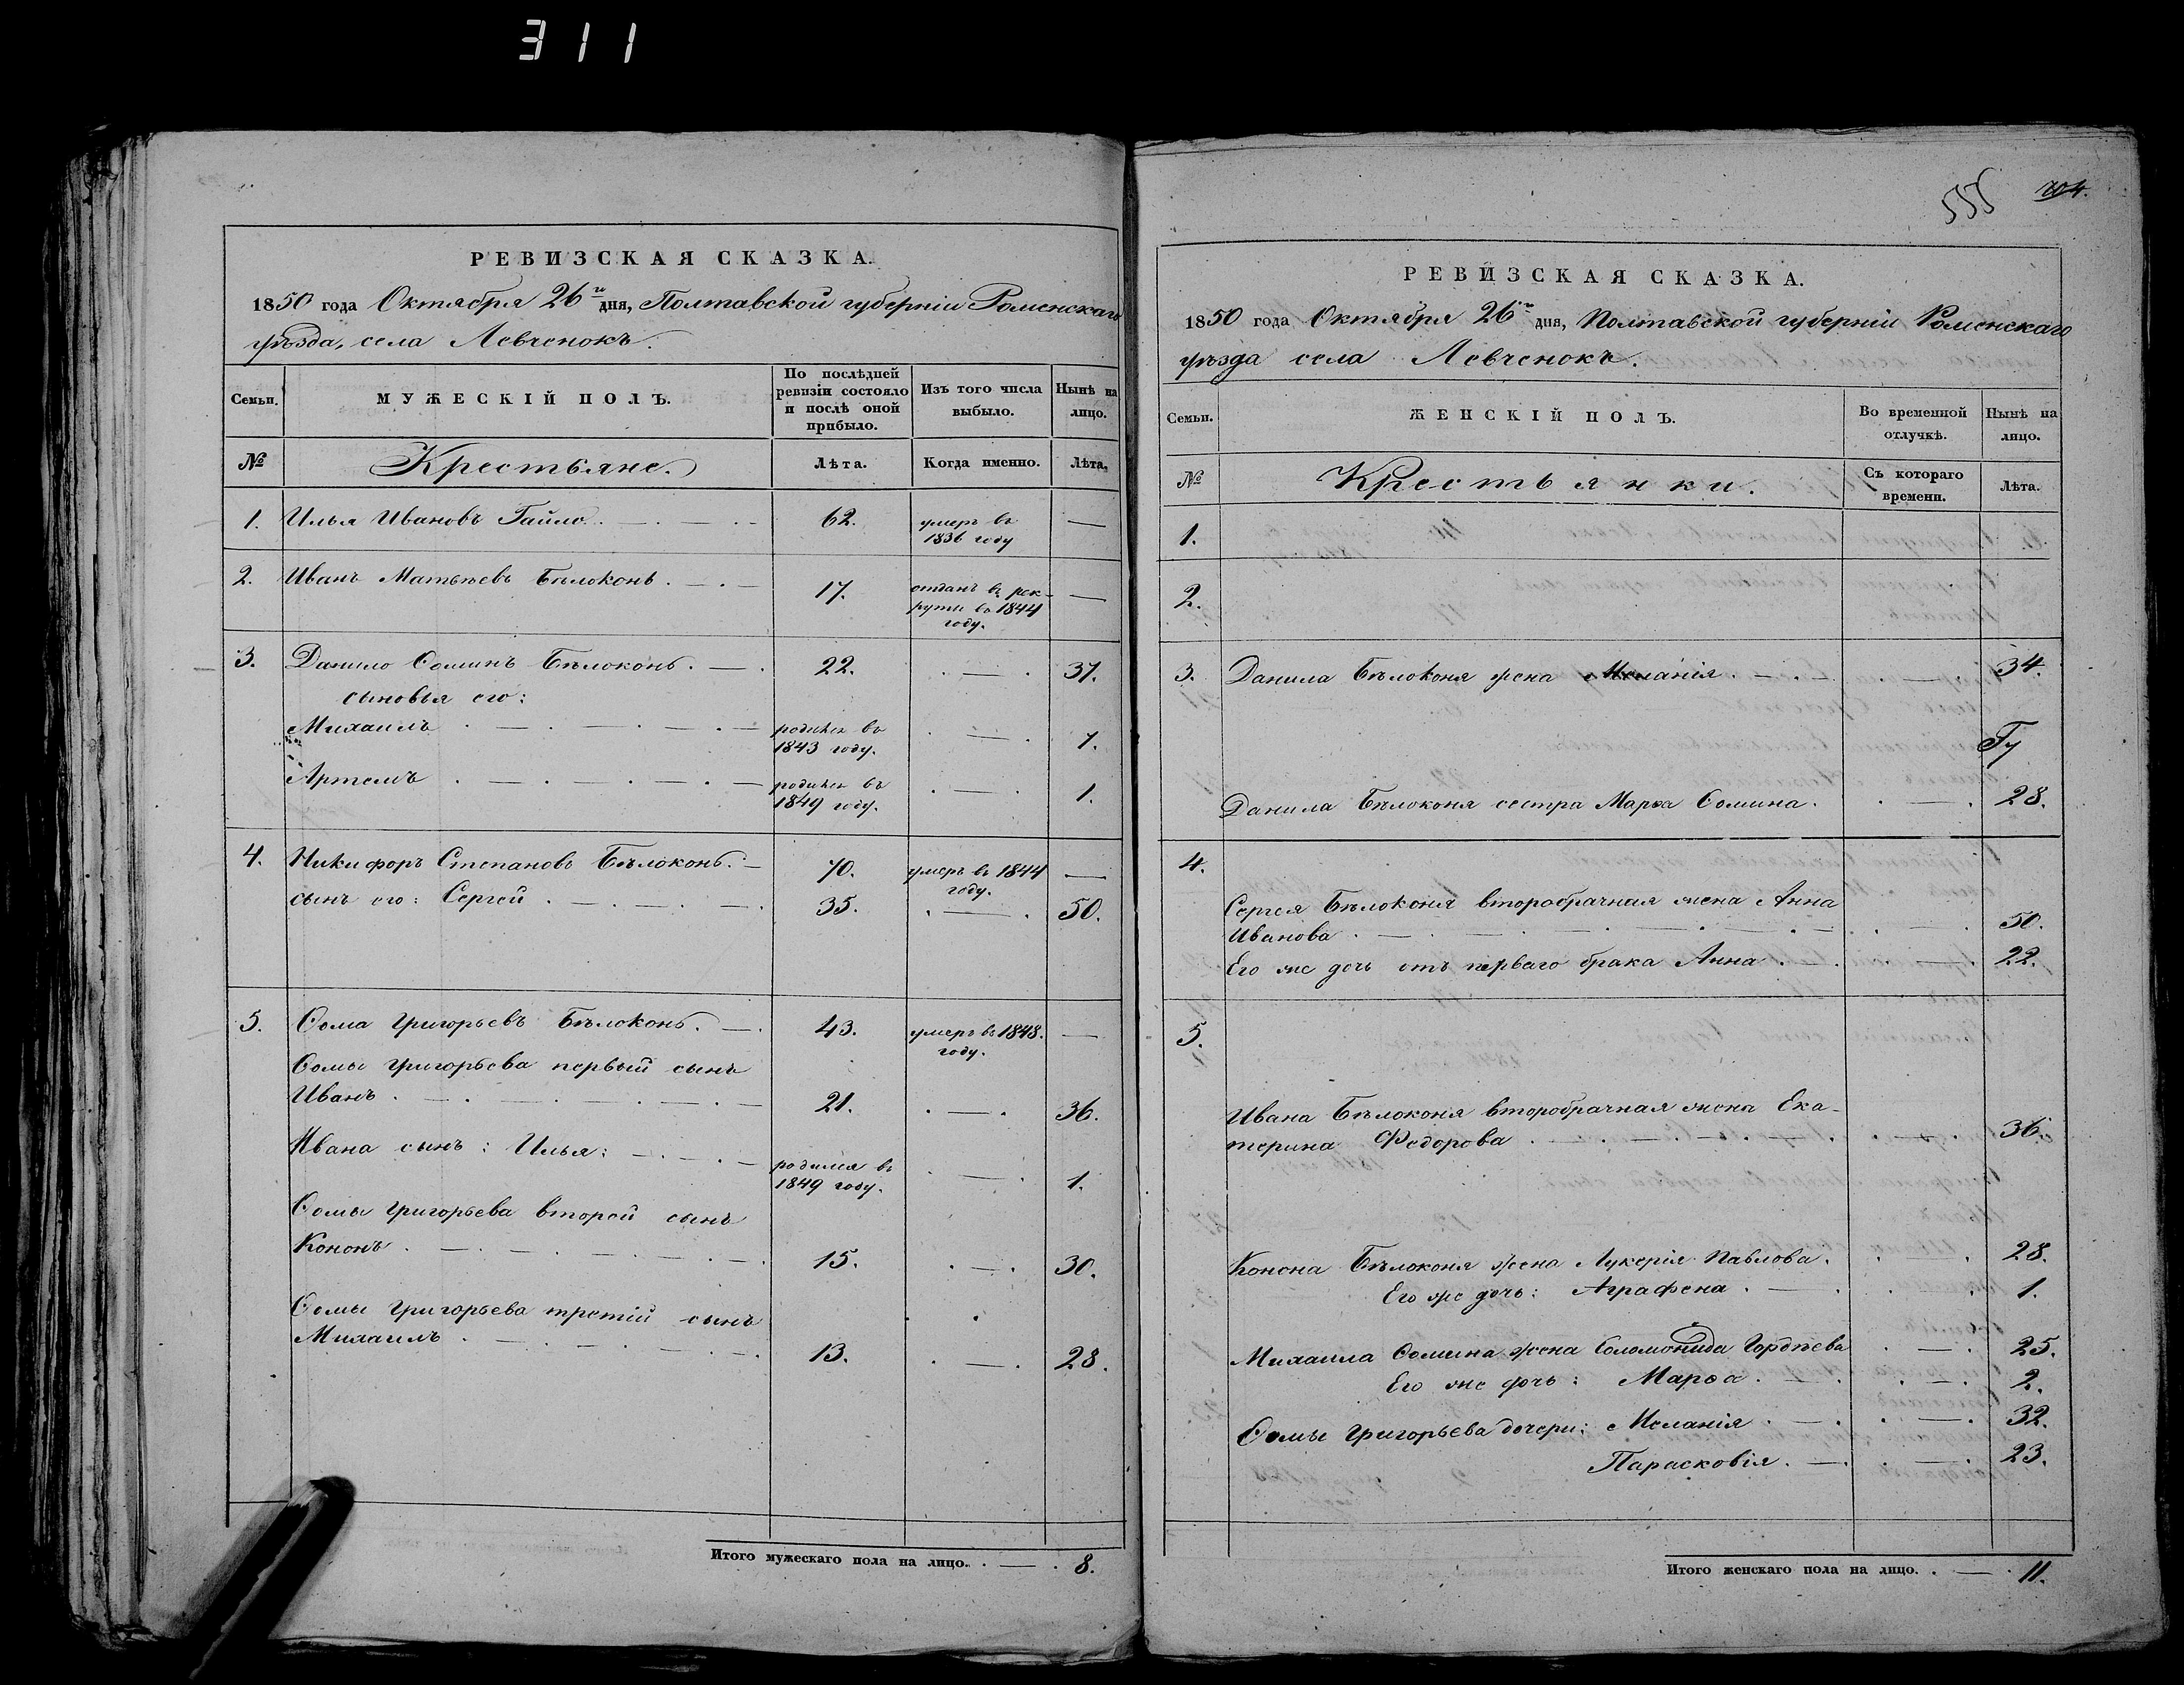 311
РЕВИЗСКАЯ СКАЗКА.
1850 года Октября 26го дня, Полтавской губерніи Роменскаго
уѣзда, села Левченокъ.
Семьи.
МУЖЕСКІЙ ПОЛЪ.
По послѣдней ревизіи состояло и послѣ оной прибыло.
Изъ того числа выбыло.
Нынѣ на лицо.
№
Крестьяне.
Лѣта.
Когда именно.
Лѣта.
1. Илья Ивановъ Гайло 62. умеръ въ 1836 году —
2. Иванъ Матвѣевъ Бѣлоконь 17. отданъ въ рекруты въ 1844 году. —
3. Данило Ѳоминъ Бѣлоконь 22. — 37.
сыновья его:
Михаилъ родился въ 1843 году. — 7.
Артемъ родился въ 1849 году. — 1.
4. Никифоръ Степановъ Бѣлоконь 70. умеръ въ 1844 году. —
сынъ его: Сергей 35. — 50.
5. Ѳома Григорьевъ Бѣлоконь 43. умеръ въ 1848. году. —
Ѳомы Григорьева первый сынъ
Иванъ 21. — 36.
Ивана сынъ: Илья: родился въ 1849 году. — 1.
Ѳомы Григорьева второй сынъ
Кононъ 15. — 30.
Ѳомы Григорьева третій сынъ
Михаилъ 13. — 28.
Итого мужескаго пола на лицо. — 8.
555
РЕВИЗСКАЯ СКАЗКА.
1850 года Октября 26го дня, Полтавской губерніи Роменскаго
уѣзда села Левченокъ.
Семьи.
ЖЕНСКІЙ ПОЛЪ.
Во временной отлучкѣ.
Нынѣ на лицо.
№
Крестьянки.
Съ котораго времени.
Лѣта.
1.
2.
3. Данила Бѣлоконя жена Меланія — 34.
Данила Бѣлоконя сестра Марѳа Ѳомина. — 28.
4.
Сергея Бѣлоконя второбрачная жена Анна
Иванова — 50.
Его же дочь отъ перваго брака Анна — 22.
5.
Ивана Бѣлоконя второбрачная жена Ека-
терина Федорова — 36.
Конона Бѣлоконя жена Лукерія Павлова. — 28.
Его же дочь: Аграфена — 1.
Михаила Ѳомина жена Соломонида Гордѣева — 25.
Его же дочь: Марѳа — 2.
Ѳомы Григорьева дочери: Меланія — 32.
Парасковія — 23.
Итого женскаго пола на лицо. — 11.